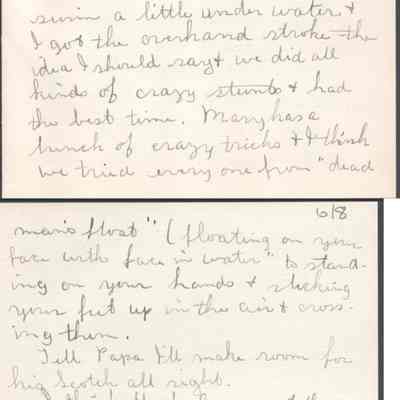 swim a little under water &
I got the overhand stroke - the
idea I should say & we did all
kinds of crazy stunts & had
the best time. Mary has a
bunch of crazy tricks & I think
we tried every one from "dead
6/8
man's float" (floating on your
face with face in water" to stand-
ing on your hands & sticking
your feet up in the air & cross-
ing them.
Tell Papa I'll make room for
his Scotch all right.